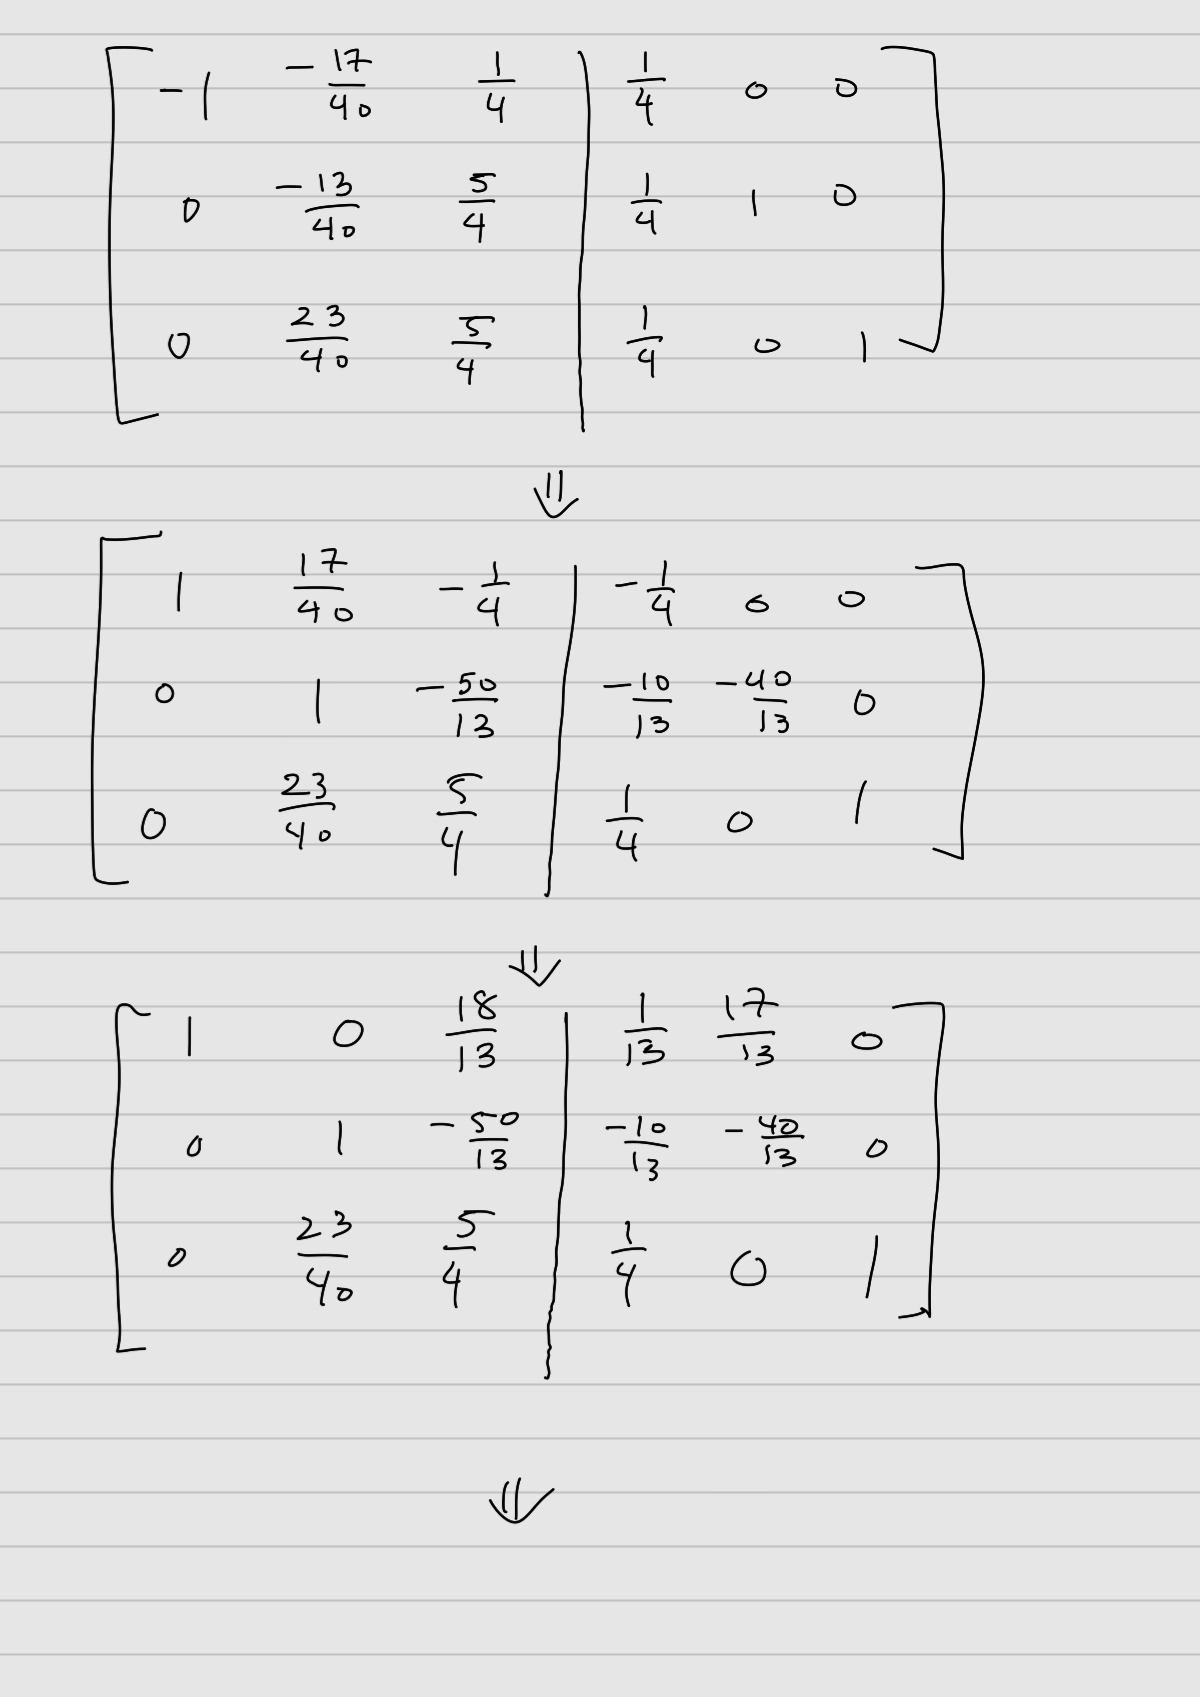 -1 -17/40 1/4 | 1/4 0 0
0 -13/40 5/4 | 1/4 1 0
0 23/40 5/4 | 1/4 0 1
⇓
1 17/40 -1/4 | -1/4 0 0
0 1 -50/13 | -10/13 -40/13 0
0 23/40 5/4 | 1/4 0 1
⇓
1 0 18/13 | 1/13 17/13 0
0 1 -50/13 | -10/13 -40/13 0
0 23/40 5/4 | 1/4 0 1
⇓